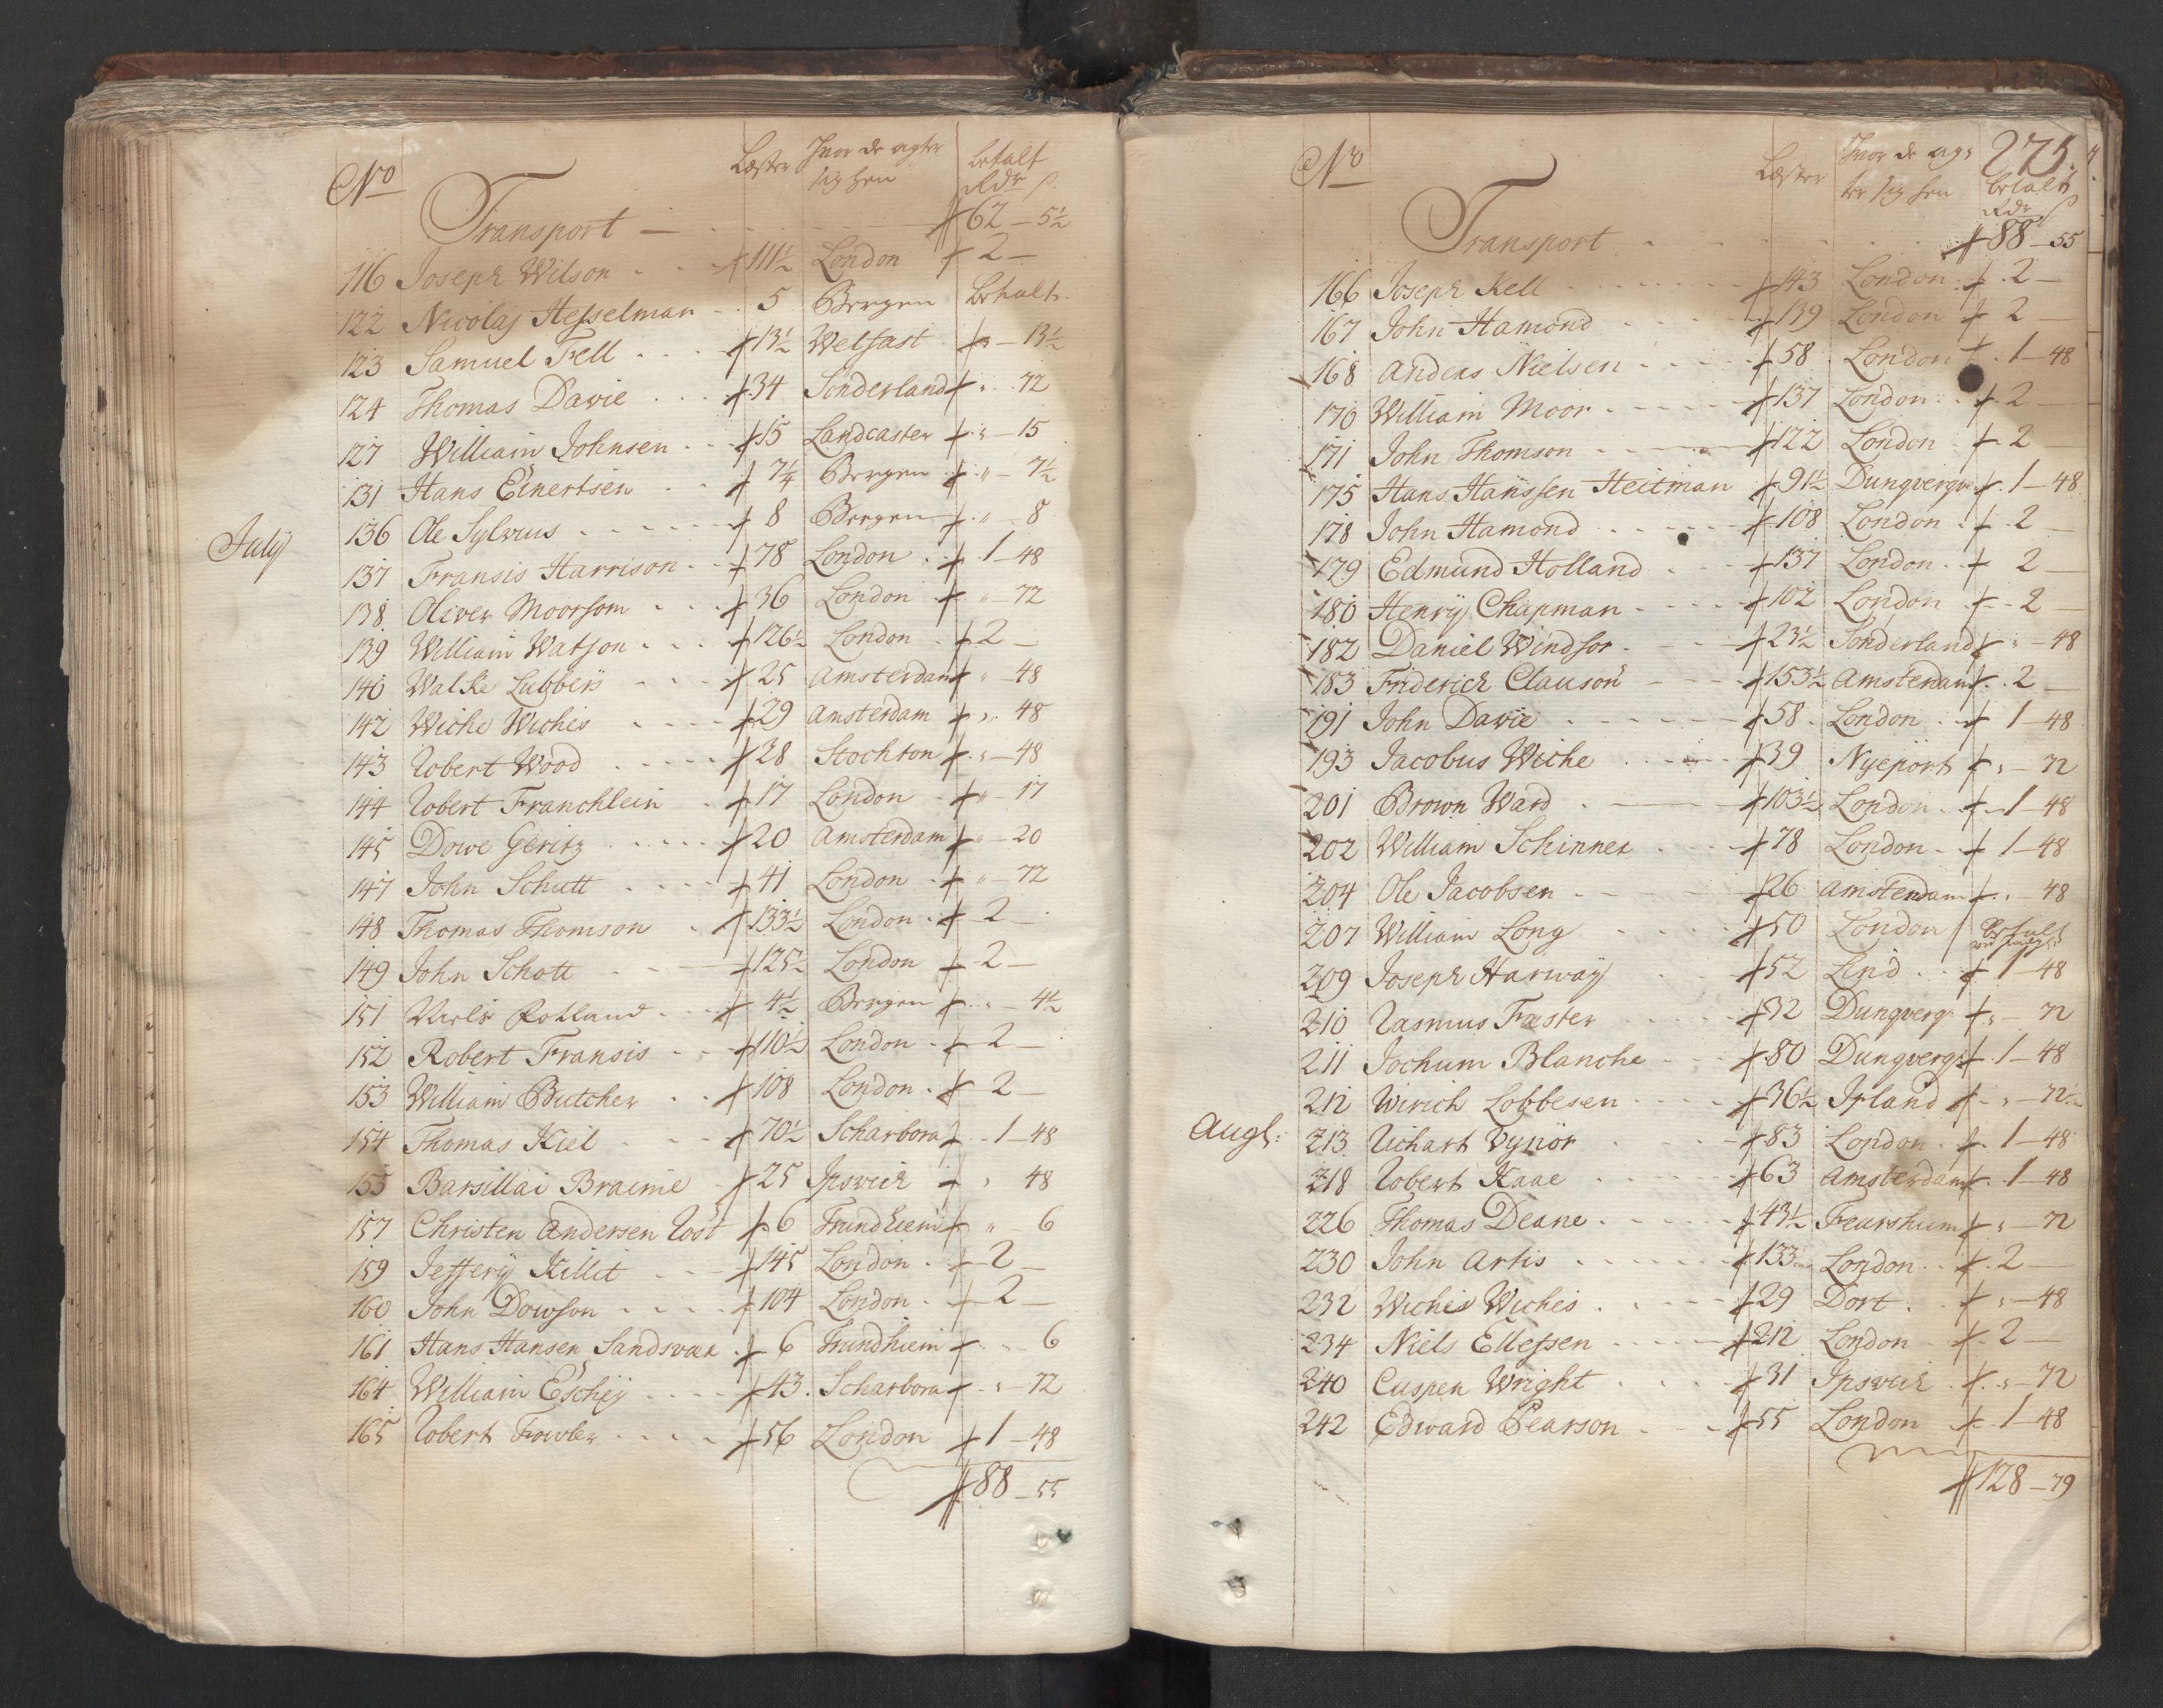 No Læster Hvor de agter betalt
sig hen Rdr ß
Transport — 62 – 5½
116 Joseph Wilson 111½ London 2 –
122 Nicolaj Hesselman 5 Bergen betalt
123 Samuel Fell 13½ Welfast " – 13½
124 Thomas Davie 34 Sonderland " 72
127 William Johnsen 15 Landcaster " – 15
131 Hans Einertsen 7¼ Bergen " – 7½
July 136 Ole Sylvius 8 Bergen " – 8
137 Fransis Harrison 78 London 1 – 48
138 Oliver Moorsom 36 London " – 72
139 William Watson 126½ London 2 –
140 Walke Lubbers 25 Amsterdam " – 48
142 Wiche Wiches 29 Amsterdam " 48
143 Robert Wood 28 Stockton " – 48
144 Robert Franchlein 17 London " – 17
145 Dowe Geritz 20 Amsterdam " – 20
147 John Schutt 41 London " – 72
148 Thomas Thomson 133½ London 2 –
149 John Schott 125½ London 2 –
151 Niels Rolland 4½ Bergen " – 4½
152 Robert Fransis 110½ London 2 –
153 William Butcher 108 London 2 –
154 Thomas Kiel 70½ Scharbora 1 – 48
155 Barsillai Braime 25 Ipswich " 48
157 Christen Andersen Rost 6 Trundhiem " – 6
159 Jeffery Killit 145 London 2 –
160 John Dowson 104 London 2 –
161 Hans Hansen Sandsvær 6 Trundhiem " 6
164 William Eschey 43 Scharbora " – 72
165 Robert Fowler 56 London 1 – 48
88 – 55
275.
No Læster Hvor de ag= betalt
ter sig hen Rdr ß
Transport 88 – 55
166 Joseph Kell 143 London 2 –
167 John Hamond 139 London 2 –
168 Anders Nielsen 58 London 1 – 48
170 William Moor 137 London 2 –
171 John Thomson 122 London 2 –
175 Hans Hanssen Heitman 91½ Dunqverqve 1 – 48
178 John Hamond 108 London 2 –
179 Edmund Holland 137 London 2 –
180 Henry Chapman 102 London 2 –
182 Daniel Windsor 23½ Sonderland " – 48
183 Friderich Clauson 153½ Amsterdam 2 –
191 John Davie 58 London 1 – 48
193 Jacobus Wiche 39 Nyeport " – 72
201 Brown Ward 103½ London 1 – 48
202 William Schinner 78 London 1 – 48
204 Ole Jacobsen 26 Amsterdam " – 48
207 William Long 50 London Betalt
209 Joseph Harway 52 Lind 1 – 48
210 Rasmus Fæster 32 Dunqverq " – 72
211 Jochum Blanche 80 Dunqverq 1 – 48
212 Wirich Lobbesen 36½ Irland " – 72
Augt: 213 Richart Vynor 83 London 1 – 48
218 Robert Kaae 63 Amsterdam 1 – 48
226 Thomas Deane 43½ Fearshum " – 72
230 John Artis 133 London 2 –
232 Wiches Wiches 29 Dort " – 48
234 Niels Ellefsen 212 London 2 –
240 Cuspen Wright 31 Ipswich " 72
242 Edward Pearson 55 London 1 – 48
128 – 79